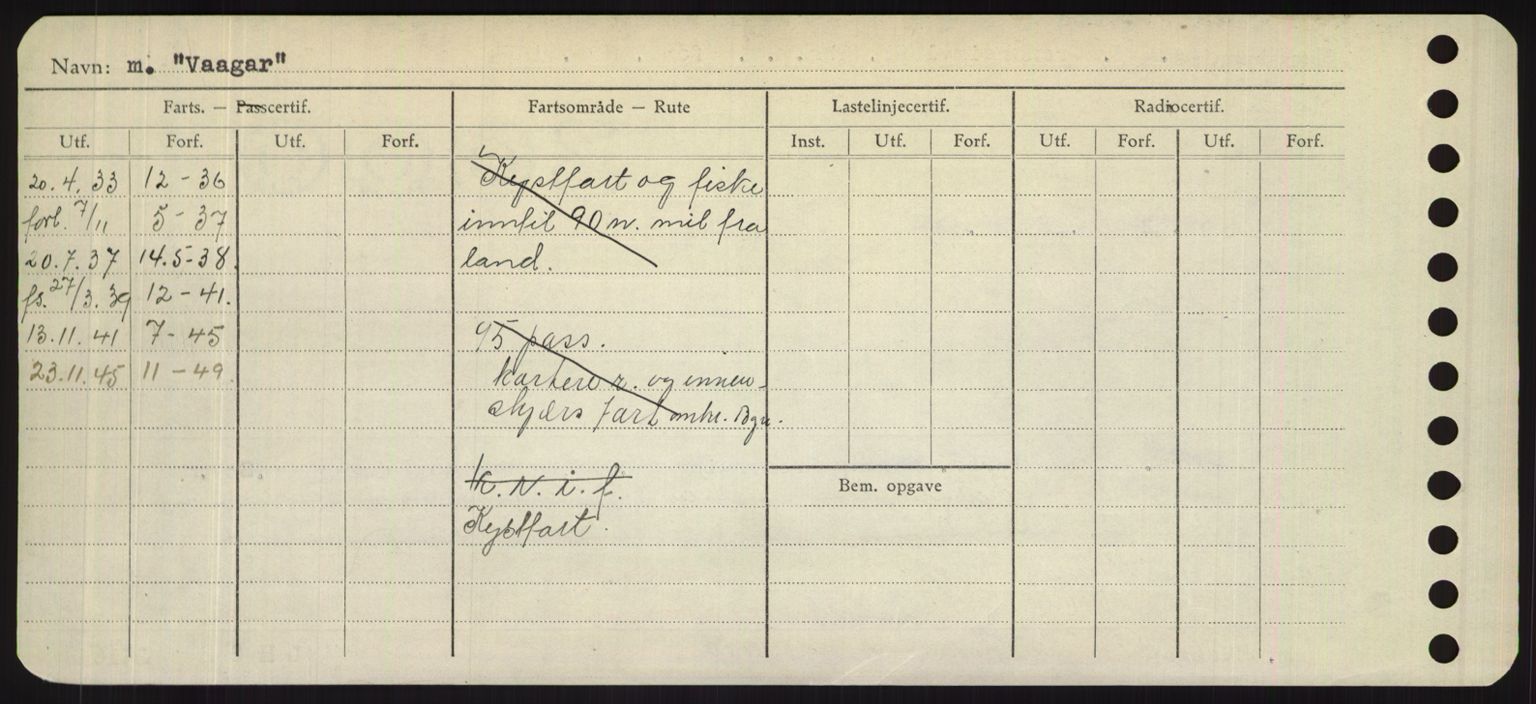 Navn: m. "Vaagar"
Farts. — Passcertif. Fartsområde — Rute Lastelinjecertif. Radiocertif.
Utf. Forf. Utf. Forf. Inst. Utf. Forf. Utf. Forf. Utf. Forf.
20.4.33 12-36 Kystfart og fiske
forl. 7/11 5-37 inntil 90 n. mil fra
20.7.37 14.5-38. land.
fs. 27/3.39 12-41.
13.11.41 7-45 95 pass.
23.11.45 11-49. kortere r. og innen-
skjærs fart omkr. Bgn.
K.N.i.f.
Bem. opgave
Kystfart.